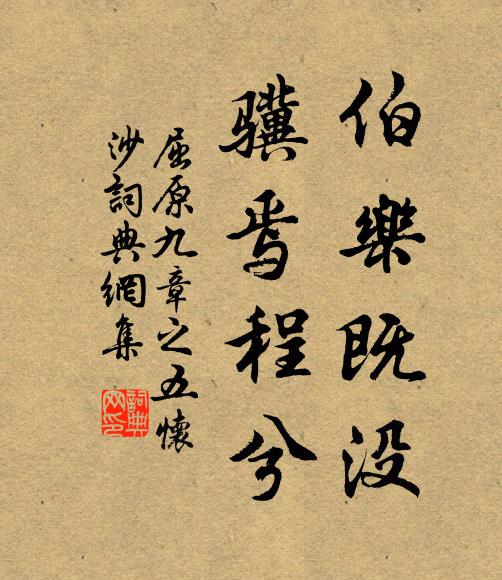 伯樂既没
骥焉程兮
屈原九章之五懷
沙詞典網集
詞典网印